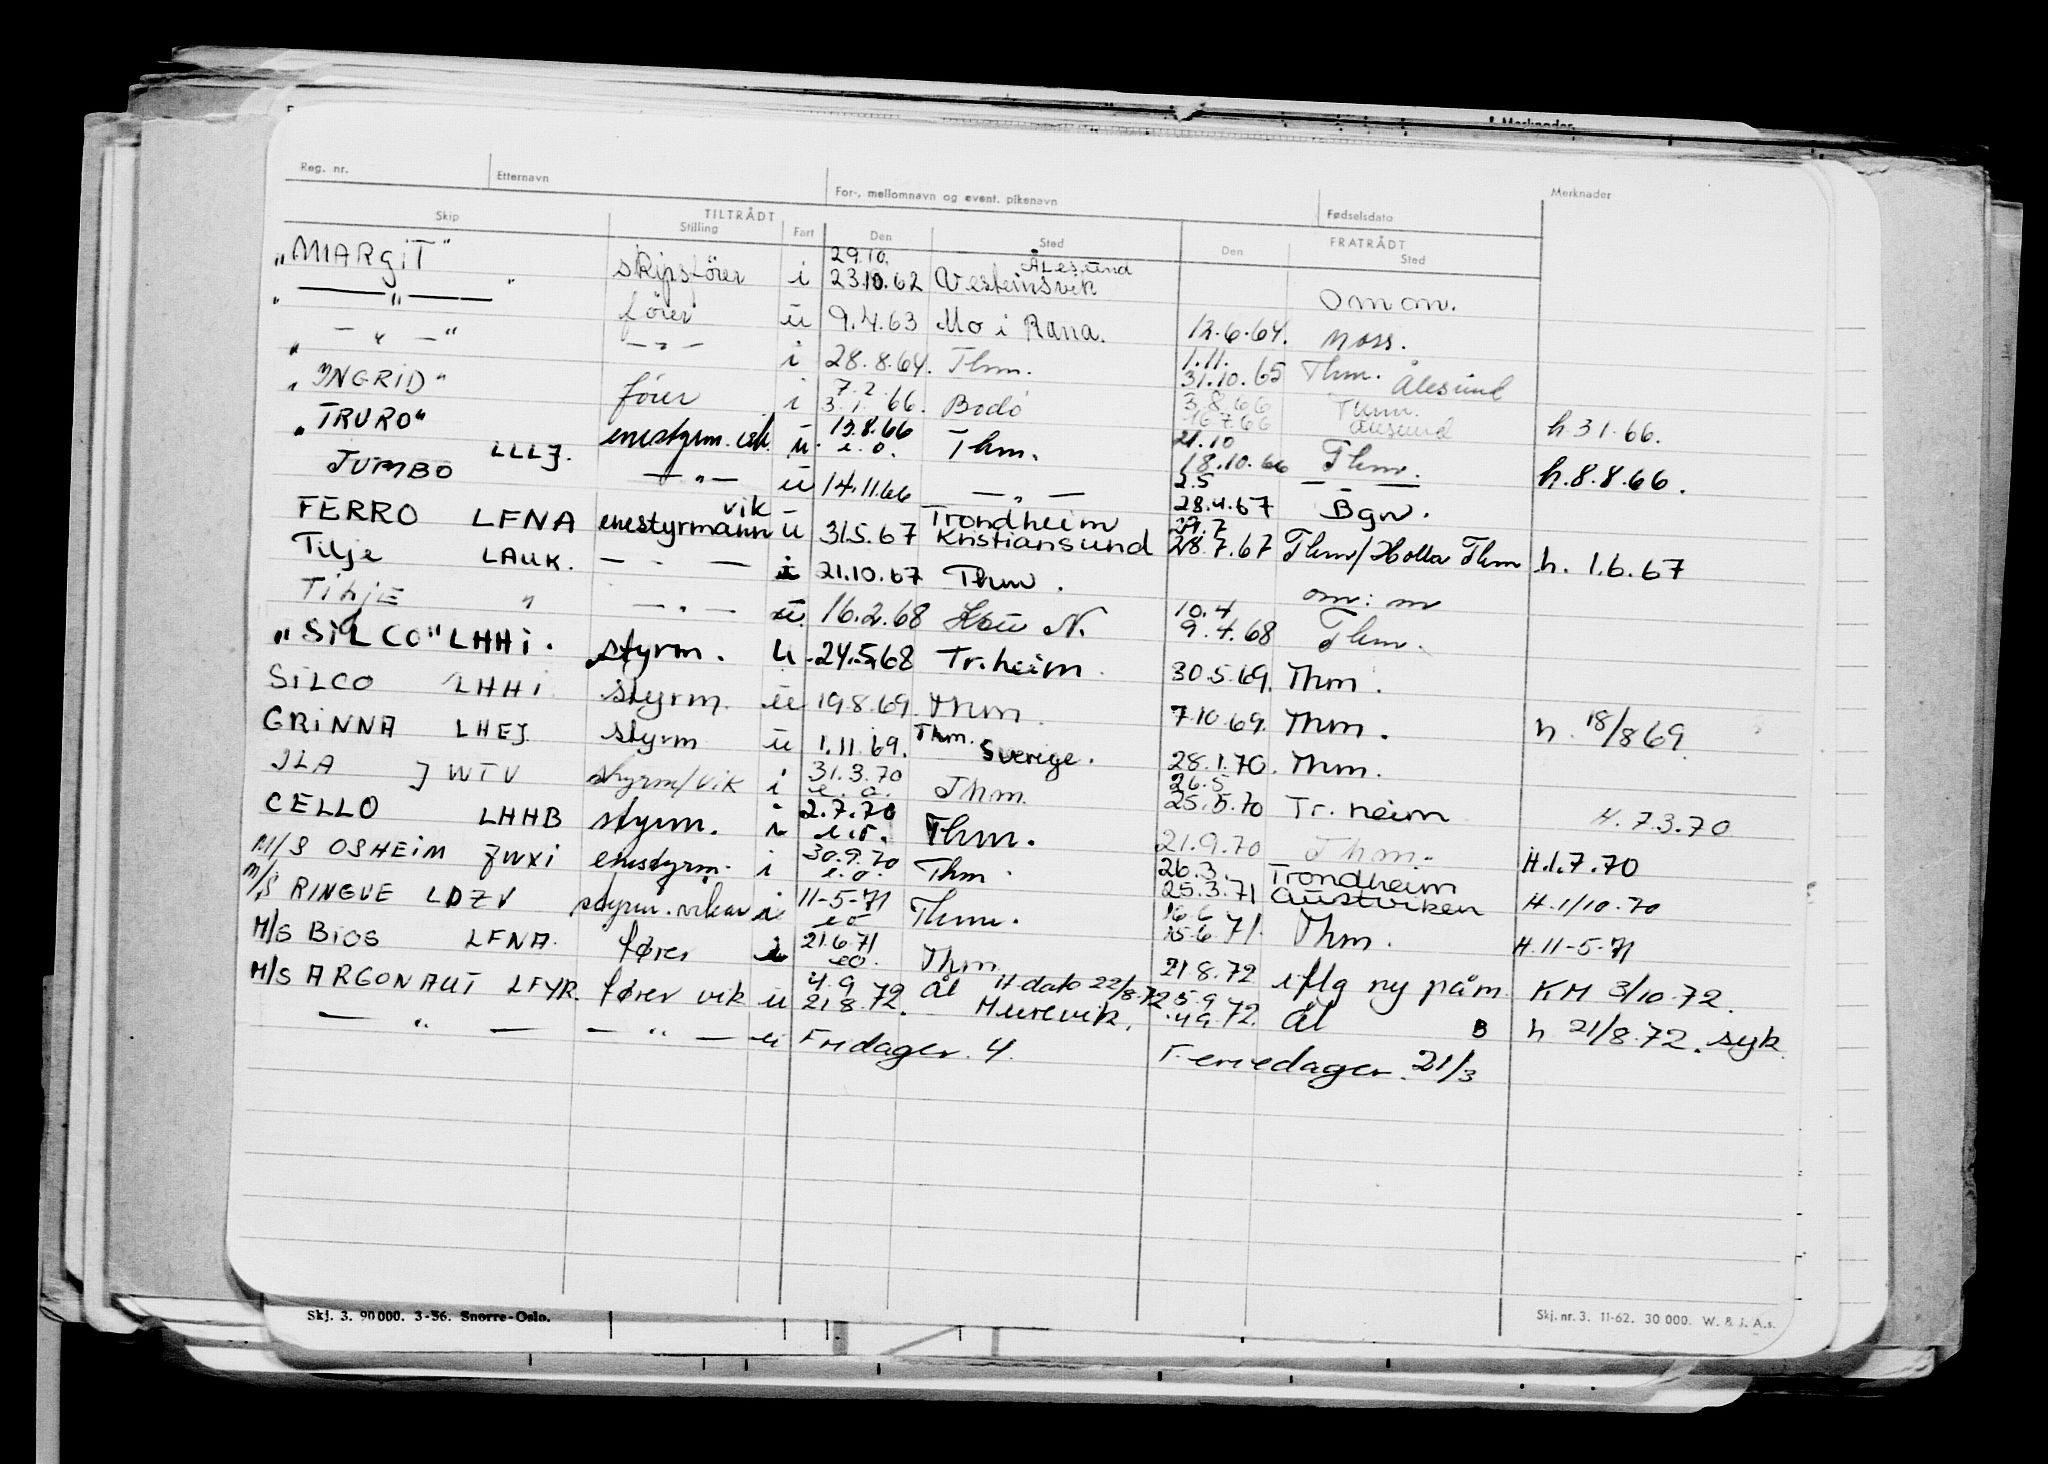 Merknader
Reg. nr. Etternavn For-, mellomnavn og event. pikenavn Fødselsdato Merknader
TILTRÅDT FRATRÅDT
Skip Stilling Fart Den Sted Den Sted
29.10. Ålesund
"MARGIT" skipsförer i 23.10.62 Vesteinsvik Om om.
" — " — förer ü 9.4.63 Mo i Rana. 12.6.64. Moss.
— " — " — " — i 28.8.64. Thm. 1.11. 31.10.65 Thm. Ålesund
"INGRID" förer i 7.2. 3.1.66. Bodö 3.8.66 Thm. 16.7.66 Ålesund h 3 1.66.
"TRURO" LLLJ. enestyrm. vik. ü 13.8.66 e.o. Thm. 21.10 18.10.66 Thm. h.8.8.66.
JUMBO — " — ü 14.11.66 — " — 2.5 28.4.67 Bgn.
FERRO LFNA enestyrmann vik ü 31.5.67 Trondheim Kristiansund 29.7 28.7.67 Thm/Holla Thm h. 1.6.67
Tilje LAUK. — " — i 21.10.67 Thm. om: m
TiljE " — " — ü. 16.2.68 N. 10.4 9.4.68 Thm.
"SILCO" LHHi. styrm. u. 24.5.68 Tr.heim. 30.5.69. Thm.
SiLCO LHHi styrm. ü 19.8.69 Thm. 7.10.69. Thm. h. 18/8 69.
GRiNNA LHEJ styrm ü 1.11.69. Thm. Sverige. 28.1.70. Thm.
ILA JWTV styrm/vik i 31.3.70 e.o. Thm. 26.5 25.5.70 Tr.heim H.7.3.70
CELLO LHHB styrm. i 2.7.70 e.o. Thm. 21.9.70 Thm. H.1.7.70
M/S OSHEIM JWXI enestyrm. i 30.9.70 e.o. Thm. 26.3. 25.3.71 Trondheim Austviken H.1/10.70
M/S RINGVE LDZV styrm. vikar i 11-5-71 eo Thm. 16.6 15.6 71. Thm. H.11-5-71
M/S BiOS LFNA. fører i 21.6.71 eo. Thm 21.8.72 iflg ny påm. KM 3/10.72.
M/S ARGONAUT LFYR. fører vik ü 4.9 21.8.72. Ål H.dato 22/8.72 Murevik. 5.9 4.9.72. Ål B h 21/8.72. syk.
— " — — " — ü Fridager. 4. Feriedager. 21/3
Skj. 3. 90 000. 3-56. Snorre-Oslo. Skj. nr. 3. 11-62. 30 000. W. & J. A.s.